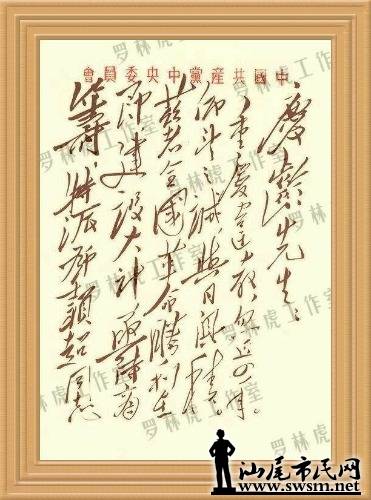 中國共產黨中央委員會
慶齡先生：
重慶違教，忽近四年。
仰望之誠，與日俱積。
茲者全國革命勝利在
即，建設大計，亟待商
籌，特派鄧穎超同志
罗林虎工作室
罗林虎工作室
罗林虎工作室
罗林虎工作室
汕尾市民网
www.swsm.net